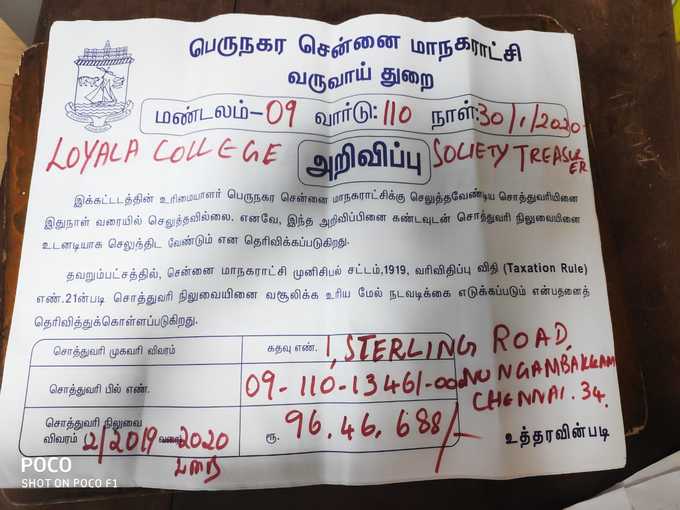 பெருநகர சென்னை மாநகராட்சி
வருவாய் துறை
மண்டலம்-09 வார்டு: 110 நாள்: 30/1/2020
LOYALA COLLEGE அறிவிப்பு SOCIETY TREASURER
இக்கட்டடத்தின் உரிமையாளர் பெருநகர சென்னை மாநகராட்சிக்கு செலுத்தவேண்டிய சொத்துவரியினை
இதுநாள் வரையில் செலுத்தவில்லை. எனவே, இந்த அறிவிப்பினை கண்டவுடன் சொத்துவரி நிலுவையினை
உடனடியாக செலுத்திட வேண்டும் என தெரிவிக்கப்படுகிறது.
தவறும்பட்சத்தில், சென்னை மாநகராட்சி முனிசிபல் சட்டம்,1919, வரிவிதிப்பு விதி (Taxation Rule)
எண்.21ன்படி சொத்துவரி நிலுவையினை வசூலிக்க உரிய மேல் நடவடிக்கை எடுக்கப்படும் என்பதனைத்
தெரிவித்துக்கொள்ளப்படுகிறது.
சொத்துவரி முகவரி விவரம் கதவு எண். 1, STERLING ROAD,
NUNGAMBAKKAM
CHENNAI. 34.
சொத்துவரி பில் எண். 09-110-13461-000
சொத்துவரி நிலுவை
விவரம் 2/2019 வரை 2020 ரூ. 96.46.688/-
உத்தரவின்படி
POCO
SHOT ON POCO F1